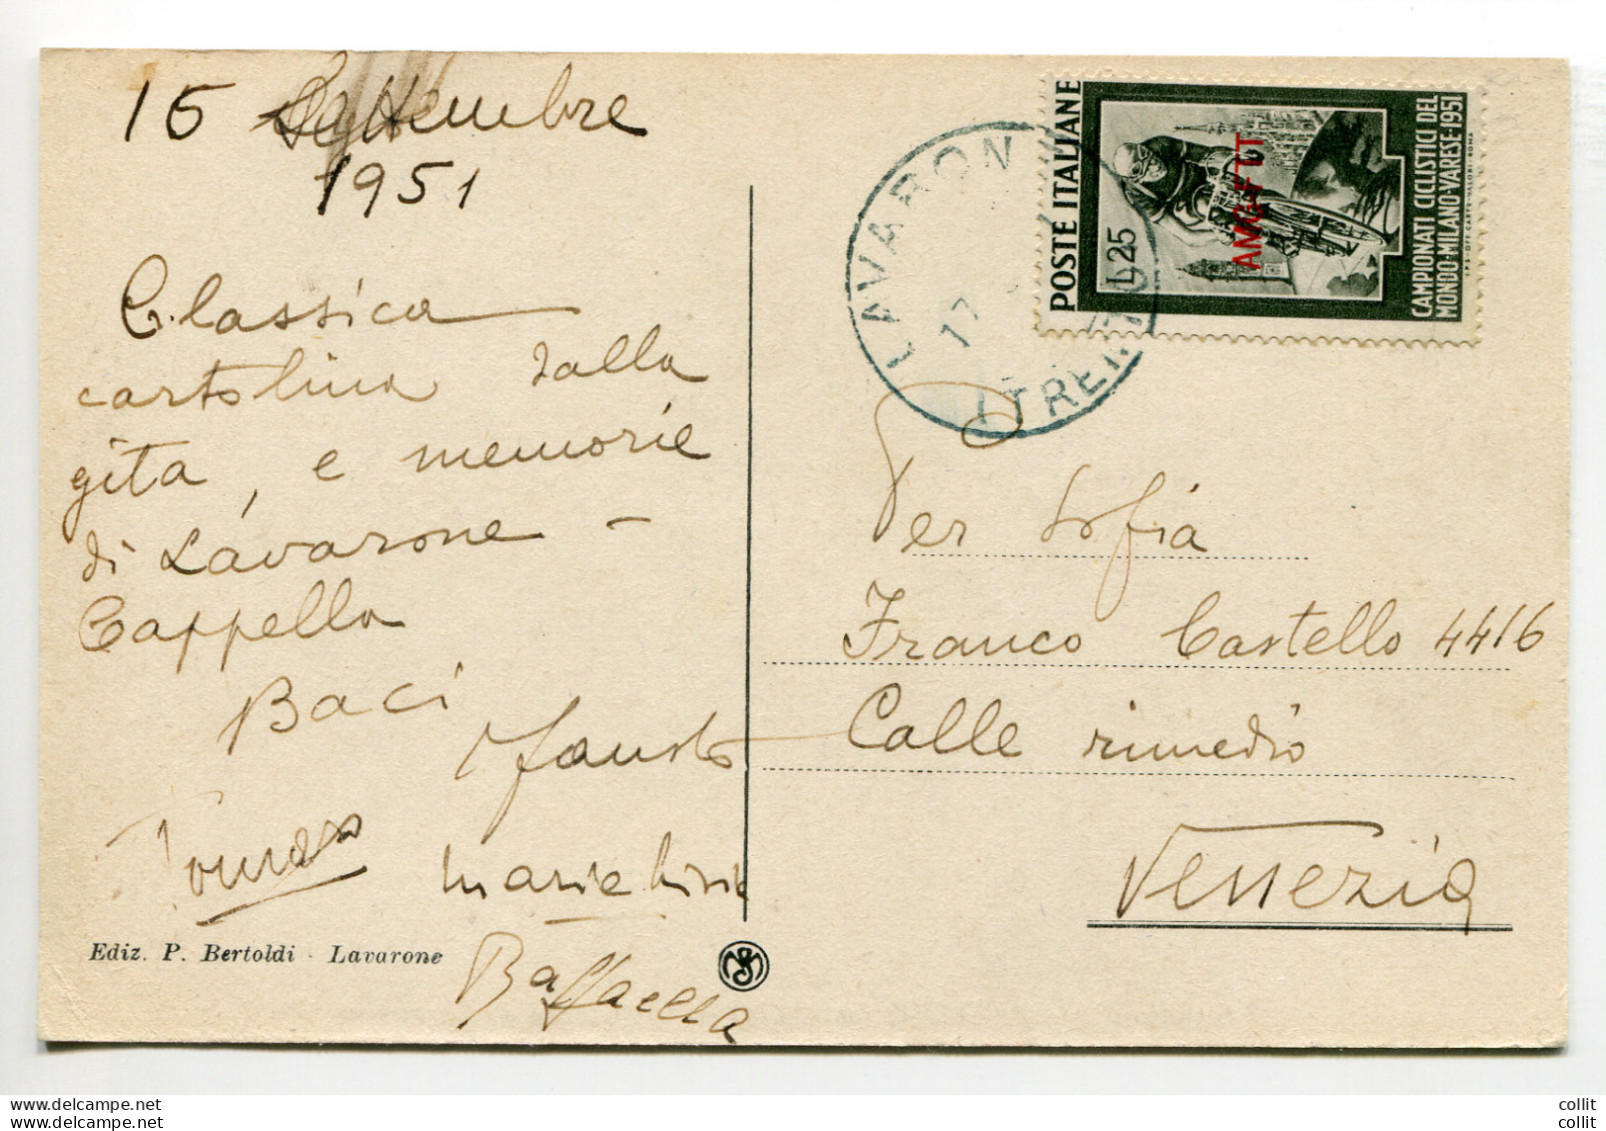 15 Settembre
1951
Classica
cartolina dalla
gita, e memorie
di Lavarone -
Cappella
Baci
Fausto
Tomaso
Raffaella
Ediz. P. Bertoldi - Lavarone
POSTE ITALIANE
L. 25
AMG-FTT
CAMPIONATI CICLISTICI DEL
MONDO-MILANO-VARESE-1951
LAVARONE
17
(TRENTO)
Per Sofia
Franco Castello 4416
Calle rimedio
Venezia
www.delcampe.net
www.delcampe.net
collit
collit